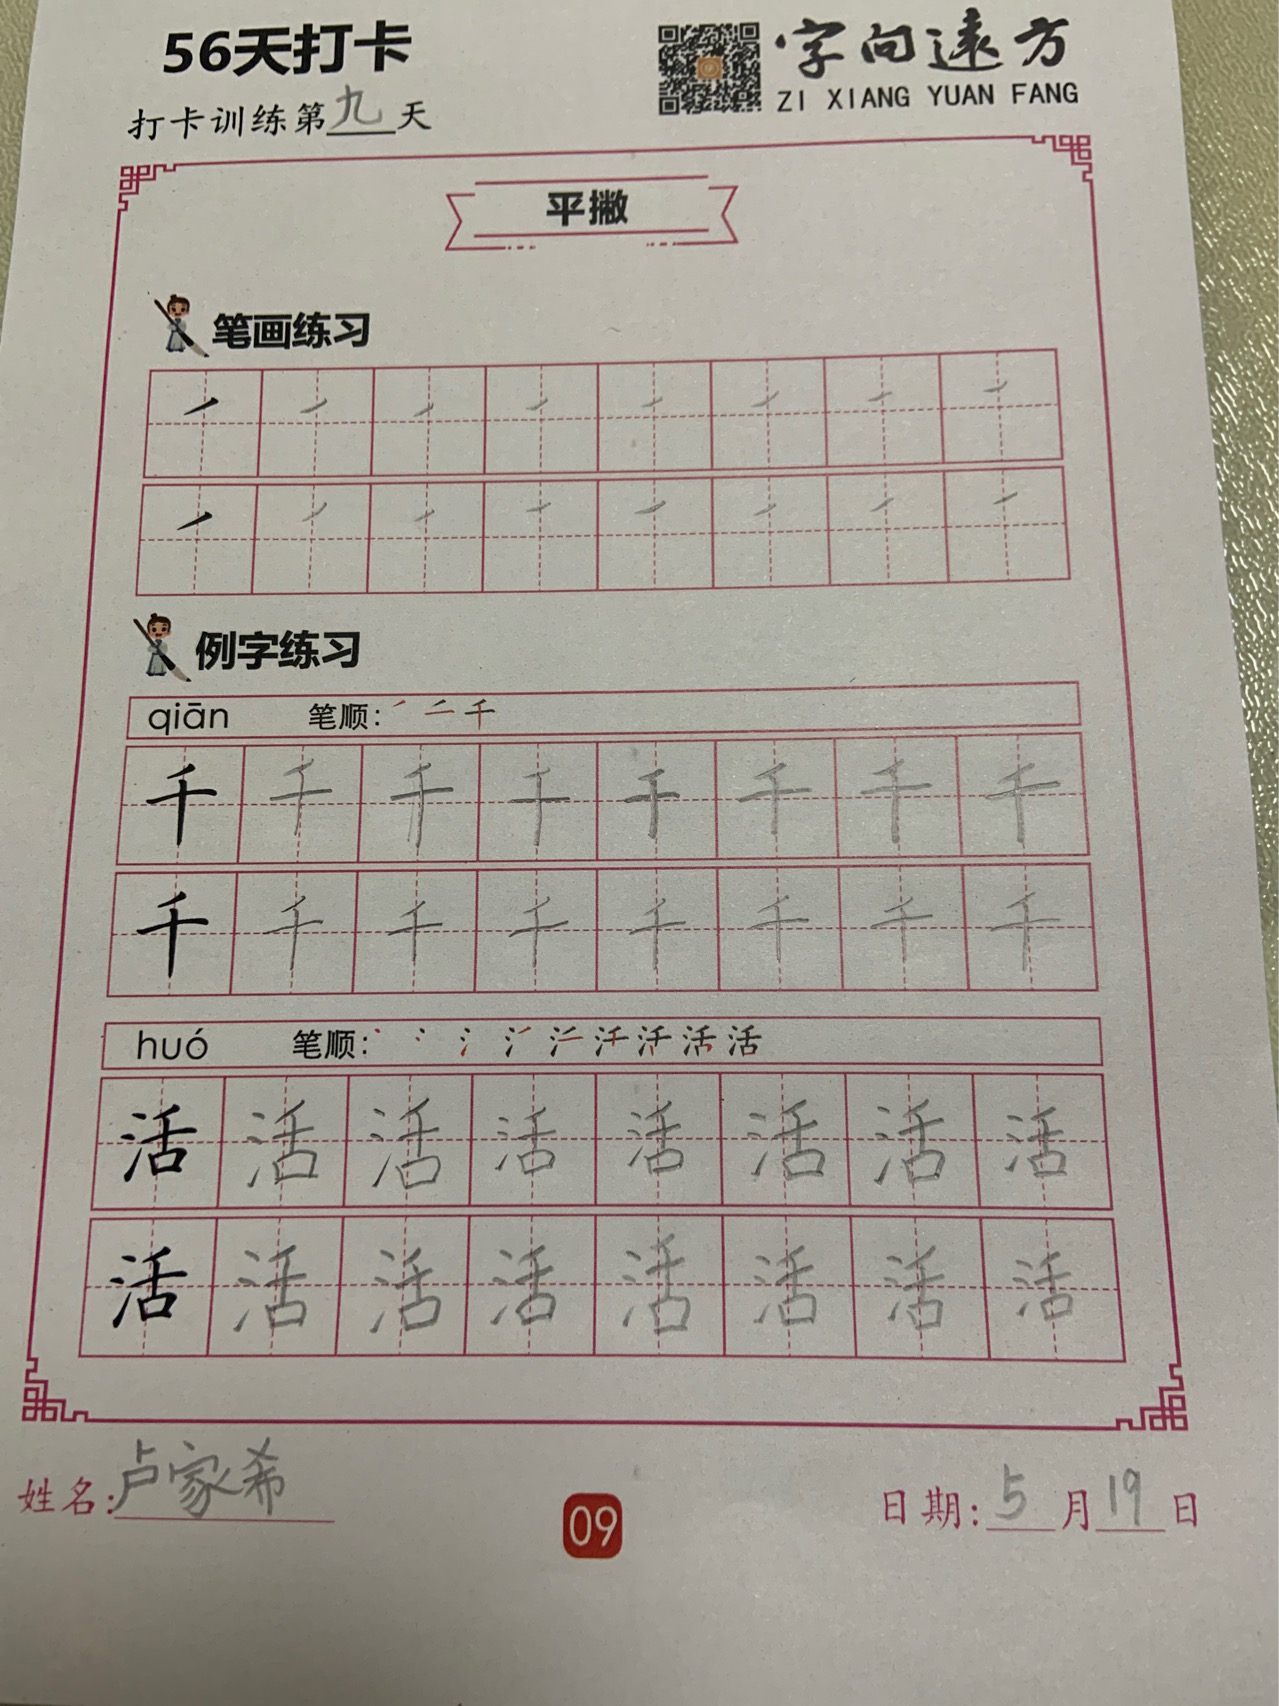 56天打卡
字向远方
ZI XIANG YUAN FANG
打卡训练第九天
平撇
笔画练习
㇒ ㇒ ㇒ ㇒ ㇒ ㇒ ㇒ ㇒
㇒ ㇒ ㇒ ㇒ ㇒ ㇒ ㇒ ㇒
例字练习
qiān 笔顺: ㇒ 二 千
千 千 千 千 千 千 千 千
千 千 千 千 千 千 千 千
huó 笔顺: 活
活 活 活 活 活 活 活 活
活 活 活 活 活 活 活 活
姓名:卢家希
09
日期:5月19日